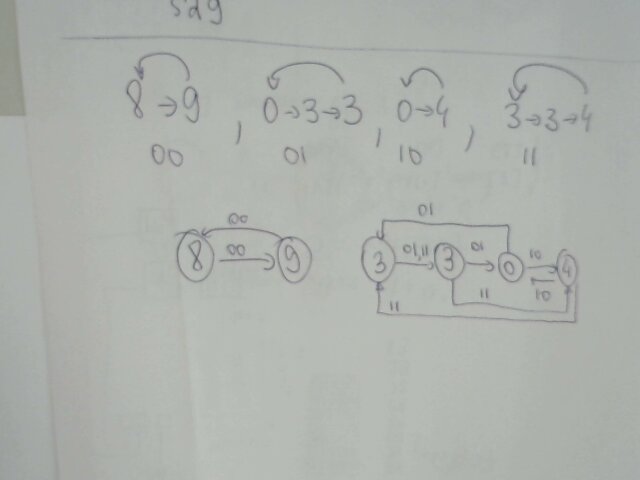 529
8→9, 0→3→3, 0→4, 3→3→4
00 01 10 11
00 01
8 00 9 3 01,11 3 01 0 10 4
10
11 11